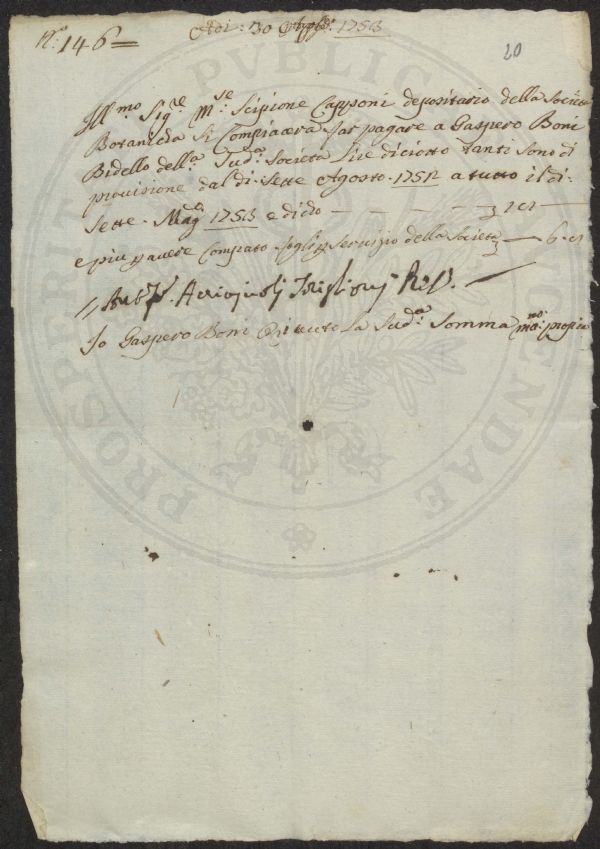 N.° 146=
Adi: 30 1753
20
Ill.mo Sig.re M.se Scipione Capponi depositario della Società
Botanicha Si Compiacerà far pagare a Gaspero Boni
Bidello dell.a Sud.a Società lire diciotto tanti sono di
provisione dal di: Sette Agosto. 1752 a tutto il di.
Sette. Mag: 1753 e dicho
e piu p avere Comprato fogli p Servizio della Società
Io Gaspero Boni Ricieuto la Sud.a Somma mano: propia
PUBLICAE
PROSPERITATI AUGENDAE